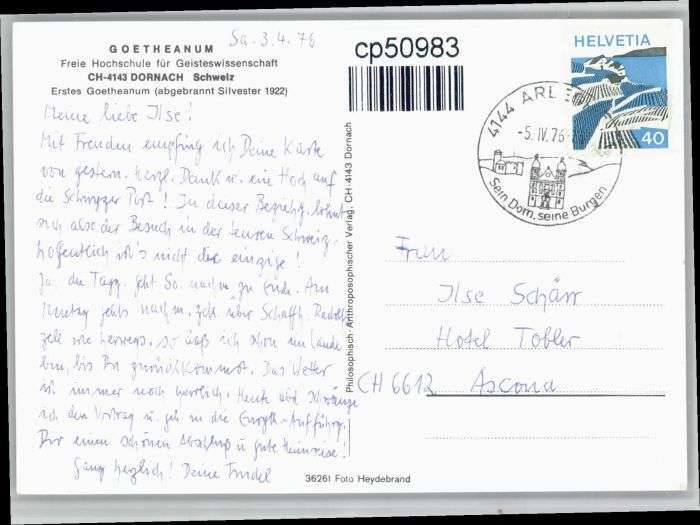 Sa. 3.4.76
GOETHEANUM
Freie Hochschule für Geisteswissenschaft
CH-4143 DORNACH Schweiz
Erstes Goetheanum (abgebrannt Silvester 1922)
Meine liebe Ilse!
Mit Freuden empfing ich Deine Karte
von gestern. Herzl. Dank u. ein Hoch auf
die Schwyzer Post! In dieser Beziehg. lohnt
sich also der Besuch in der teuren Schweiz.
Hoffentlich ist's nicht die einzige!
Ja, die Tagg. geht So. nachm. zu Ende. Am
Montag gehts nachm. zck. über Schaffh. Radolf
zell wie herwegs, so daß ich schon im Lande
bin, bis Du zurückkommst. Das Wetter
ist immer noch herrlich. Heute abd. schwänze
ich den Vortrag u. geh in die Euryth.-Aufführg.
Dir einen schönen Abschluß u. gute Heimreise!
Ganz herzlich! Deine Trudel
Philosophisch-Anthroposophischer Verlag, CH-4143 Dornach
36261 Foto Heydebrand
cp50983
HELVETIA
40
4144 ARL
-5.IV.76-
Sein Dom, seine Burgen
Frau
Ilse Schärr
Hotel Tobler
CH 6612 Ascona